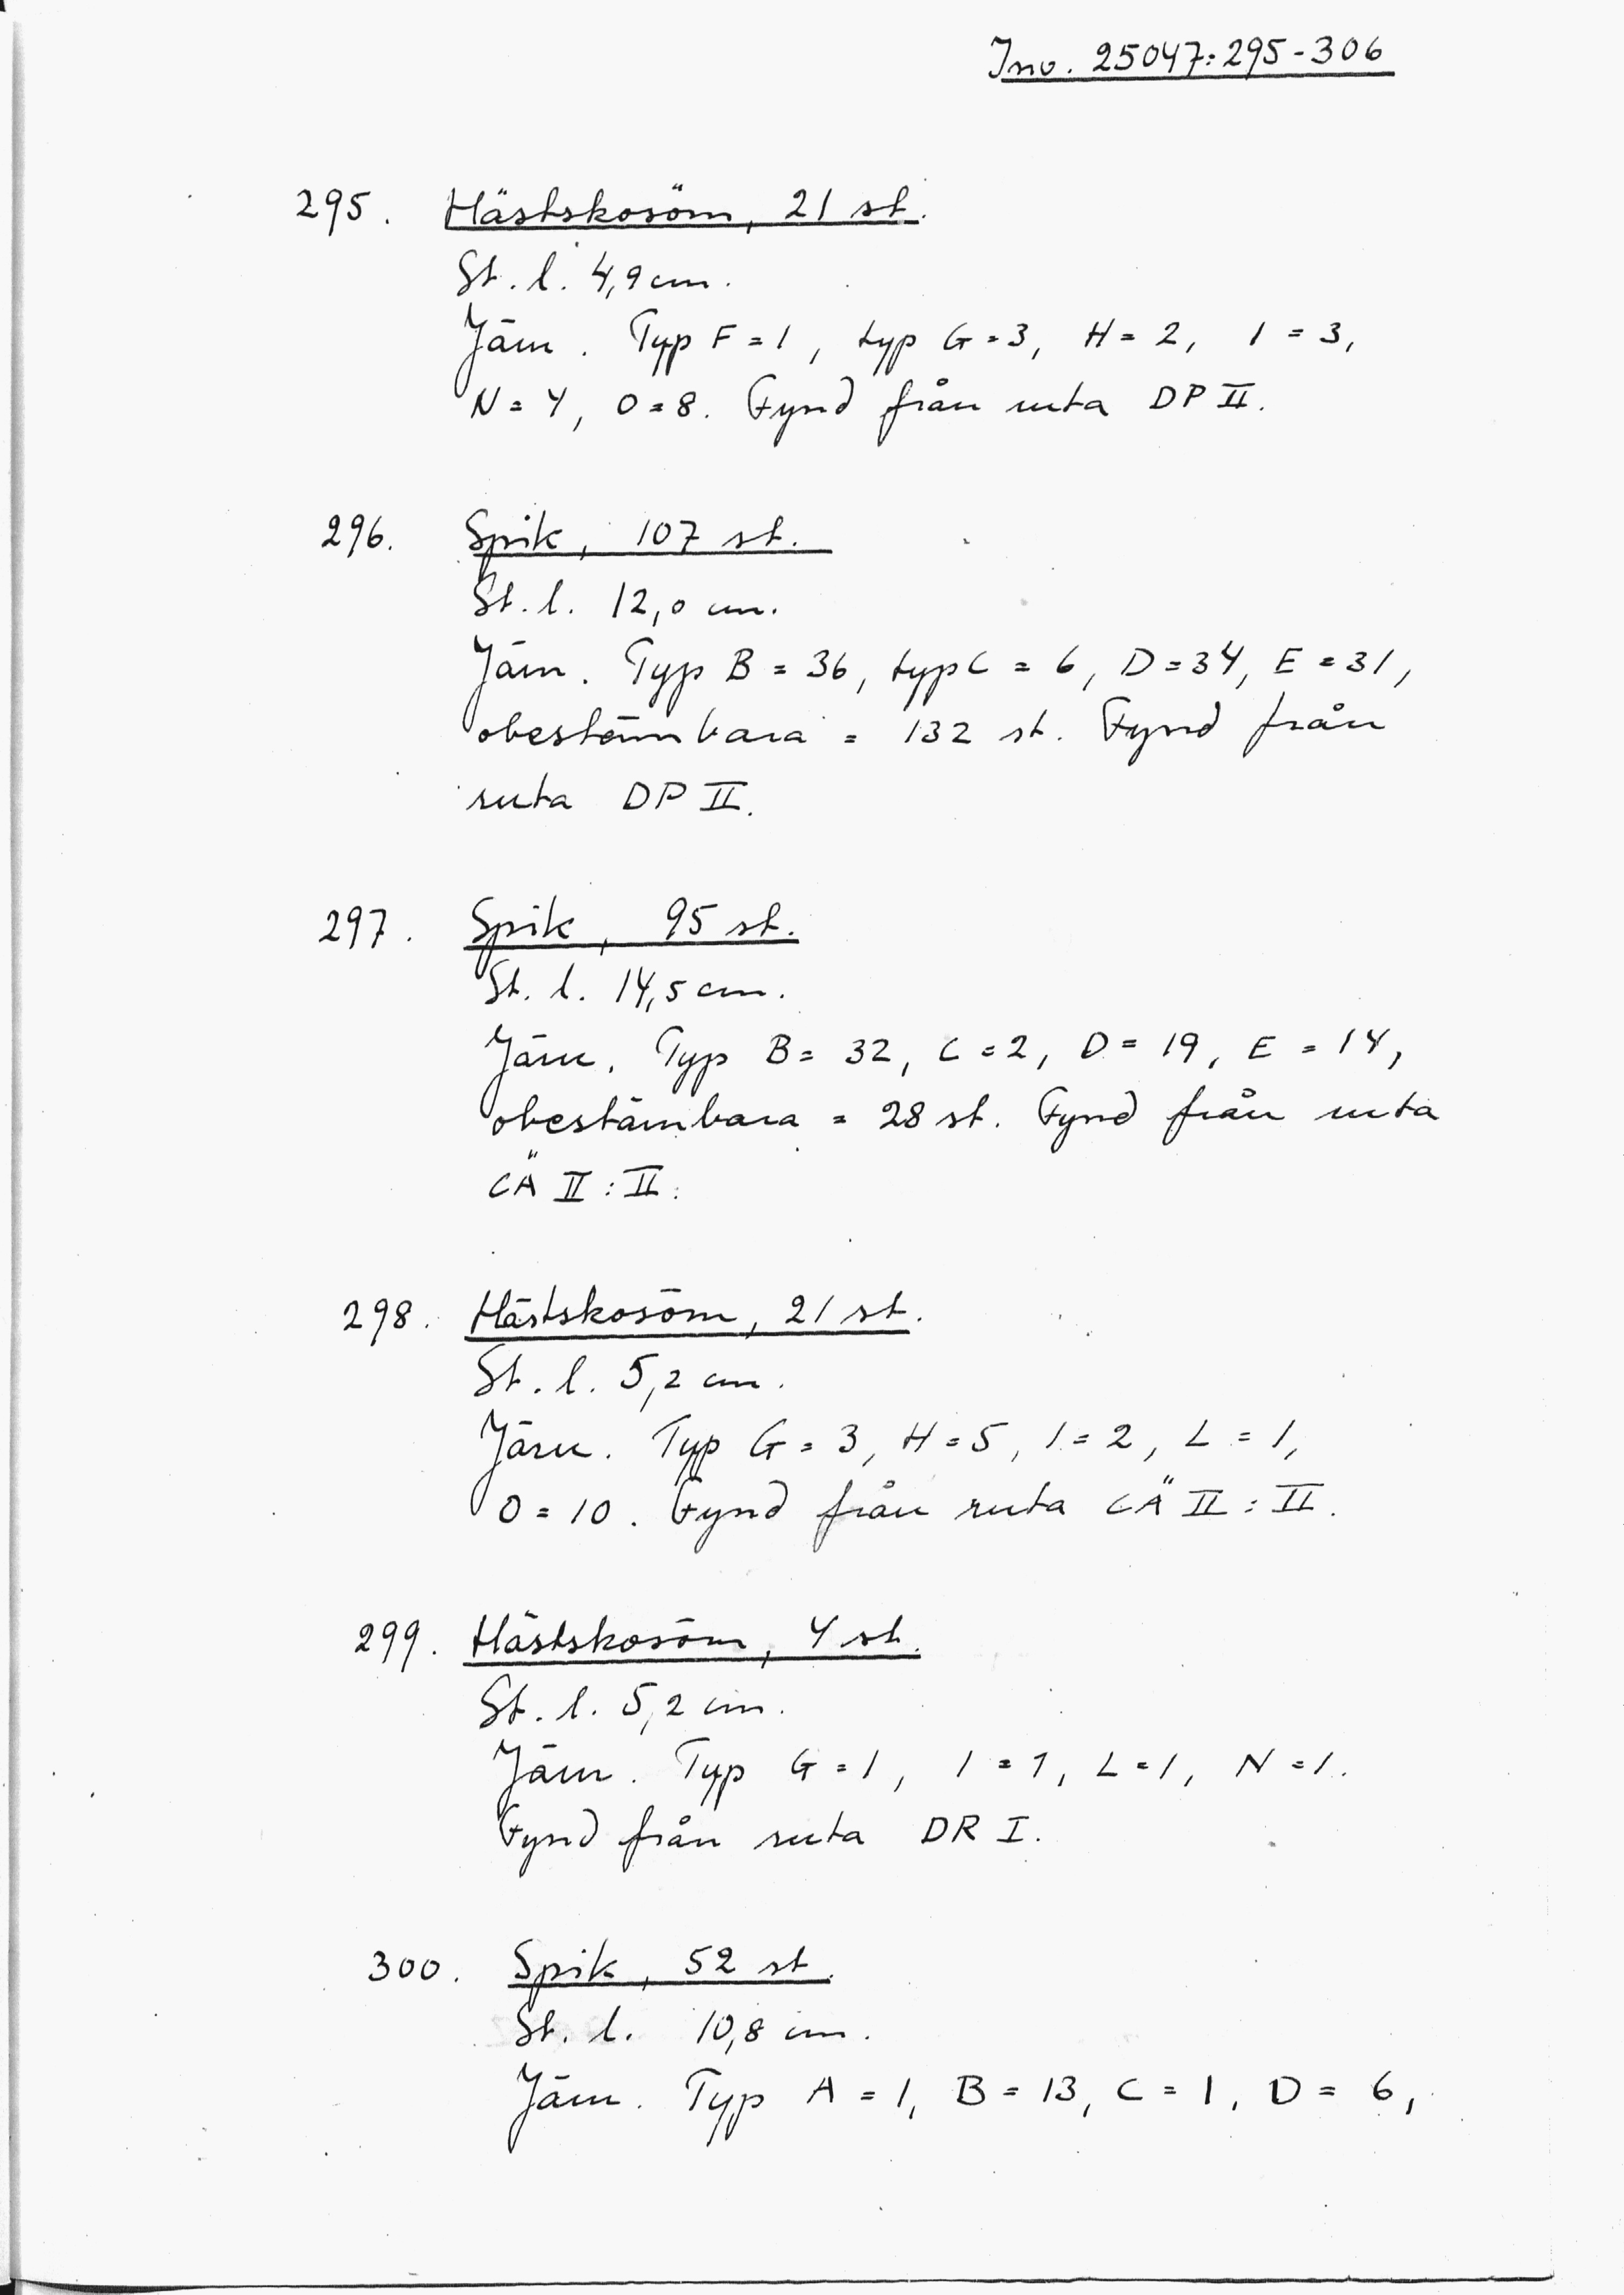 Inv. 25047:295-306
295. Hästskosöm, 21 st.
St. l. 4,9 cm.
Järn. Typ F = 1, typ G = 3, H = 2, I = 3,
N = 4, O = 8. Fynd från ruta DP II.
296. Spik, 107 st.
St. l. 12,0 cm.
Järn. Typ B = 36, typ C = 6, D = 34, E = 31,
obestämbara = 132 st. Fynd från
ruta DP II.
297. Spik, 95 st.
St. l. 14,5 cm.
Järn. Typ B = 32, C = 2, D = 19, E = 14,
obestämbara = 28 st. Fynd från ruta
CÄ II : II.
298. Hästskosöm, 21 st.
St. l. 5,2 cm.
Järn. Typ G = 3, H = 5, I = 2, L = 1,
O = 10. Fynd från ruta CÄ II : II.
299. Hästskosöm, 4 st.
St. l. 5,2 cm.
Järn. Typ G = 1, I = 1, L = 1, N = 1.
Fynd från ruta DR I.
300. Spik, 52 st.
St. l. 10,8 cm.
Järn. Typ A = 1, B = 13, C = 1, D = 6,